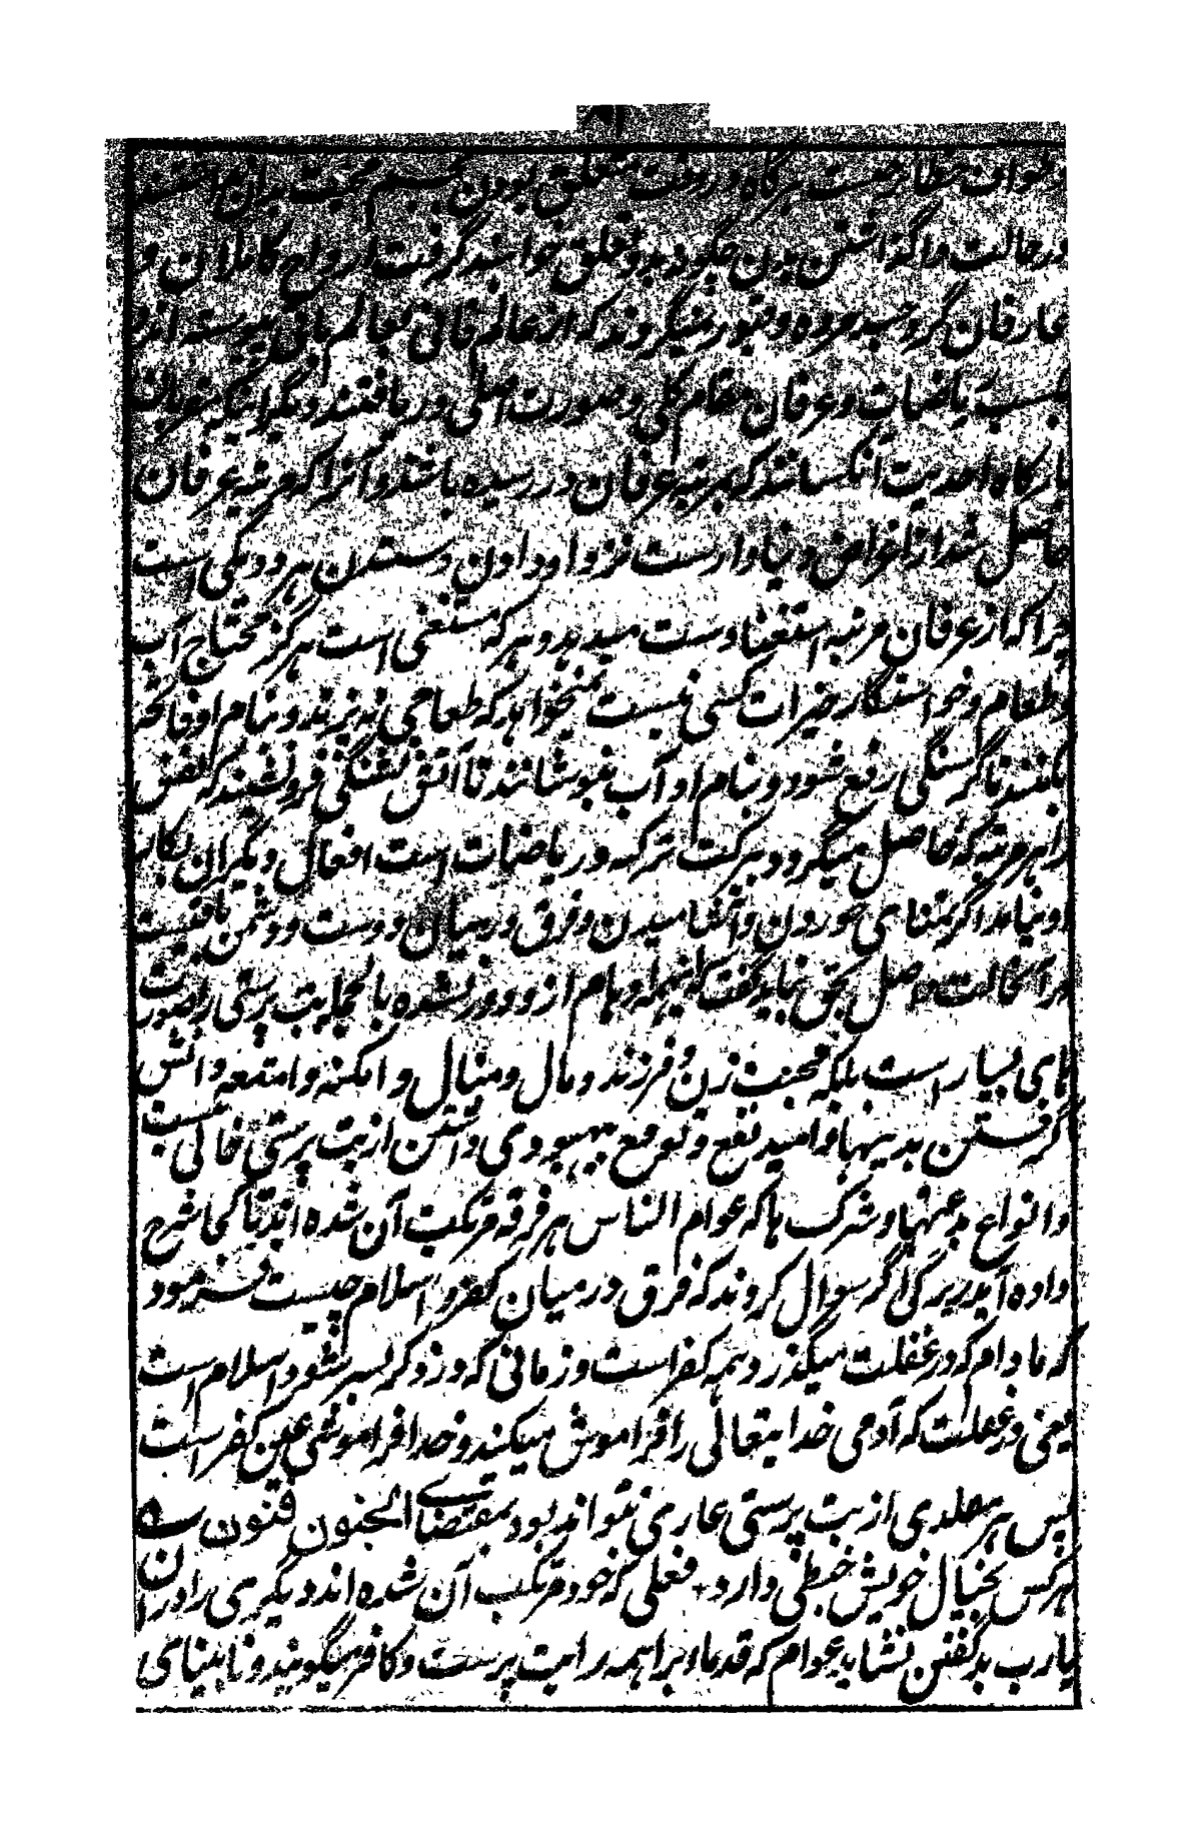 و طواف خطا نیست هرگاه در وقت متعلق بودن بجسم محبت بدان نداشتند
در حالت واگذاشتن بدن چگونه بدو تعلق خواهند گرفت ارواح کاملان و
عارفان گرد جسد مرده و قبور نمیگردند که از عالم فانی بعالم باقی پیوسته اند و
حسب ریاضات و عرفان مقام کلی و صورت اصلی دریافتند دیگر اینکه مقربان
بارگاه احدیت آنکسانند که بمرتبه عرفان در رسیده باشند و آنرا که مرتبه عرفان
حاصل شد از اغراض دنیا وارست نزد او دادن و ستدن هر دو یکی است
چرا که از عرفان مرتبه استغنا دست میدهد و هر که مستغنی است هرگز محتاج آب
و طعام و خواستگار خیرات کسی نیست نمیخواهد که طعامی بپزند و بنام او فاتحه
بکنند تا گرسنگی رفع شود و بنام او آب بنوشانند تا آتش تشنگی فرو نشیند که نفس
را هر مرتبه که حاصل میگردد ببرکت ترک و ریاضات است افعال دیگران بکار
او نیاید اگر تمنای خوردن و آشامیدن و فرق درمیان دوست و دشمن باقیست
در آنحالت واصل بحق نباید گفت که اینهمه اوهام ازو دور نشده بالجمله بت پرستی را صورت
های بسیار است بلکه محبت زن و فرزند و مال و منال و امکنه و امتعه و انس
گرفتن بدینها و امید نفع و توقع بهبودی داشتن از بت پرستی خالی نیست
و انواع بدعتها و شرک ها که عوام الناس هر فرقه مرتکب آن شده اند تا کجا شرح
داده آید از بزرگی سوال کردند که فرق درمیان کفر و اسلام چیست فرمود
که مادام که در غفلت میگذرد همه کفر است و زمانی که در ذکر بسر شود اسلام است
یعنی در غفلت که آدمی خدایتعالی را فراموش میکند و خدا فراموشی عین کفر است
پس هر مقلدی از بت پرستی عاری نتواند بود بمقتضای الجنون فنون
هر کس بخیال خویش خبطی دارد فعلی که خود مرتکب آن شده اند دیگری را در آن
یارب بد گفتن نشاید عوام که قدما و براهمه را بت پرست و کافر میگویند و نابینای